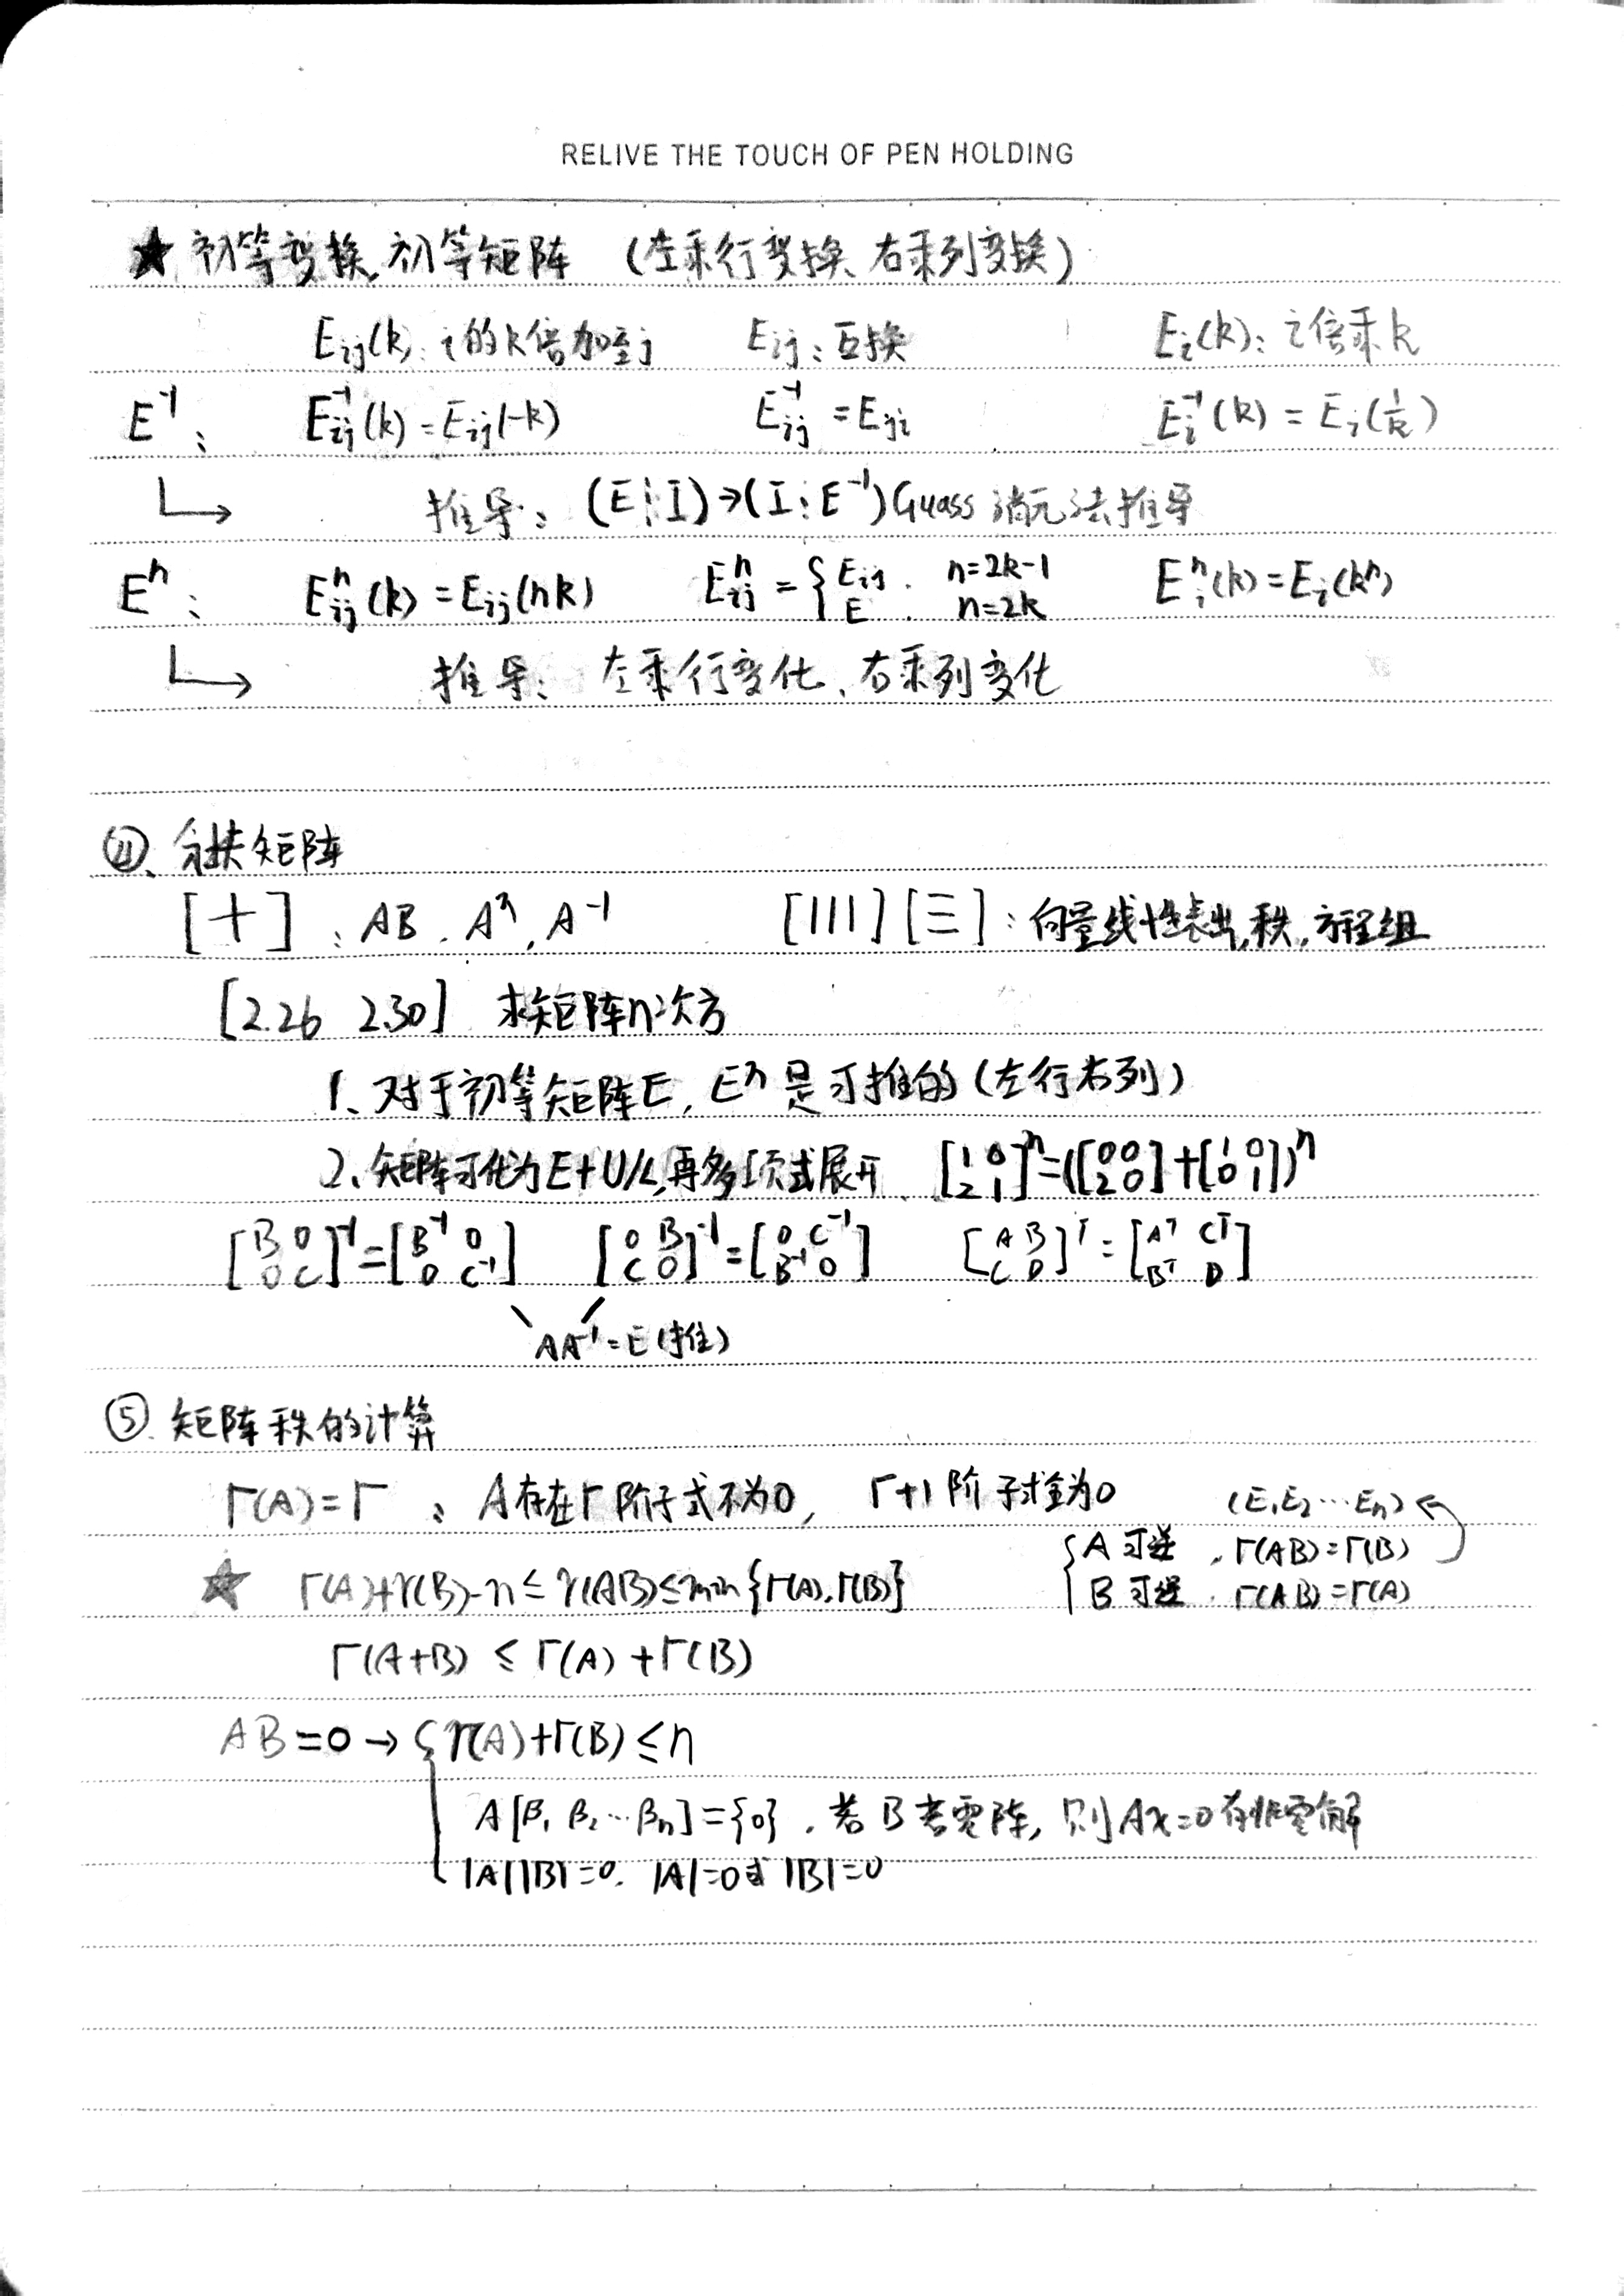 RELIVE THE TOUCH OF PEN HOLDING
★ 初等变换、初等矩阵 (左乘行变换、右乘列变换)
E_ij(k): i的k倍加至j E_ij: 互换 E_i(k): i倍乘k
E⁻¹: E_ij⁻¹(k) = E_ij(-k) E_ij⁻¹ = E_ji E_i⁻¹(k) = E_i(1/k)
↳ 推导: (E¦I)→(I¦E⁻¹) Guass 消元法推导
Eⁿ: E_ijⁿ(k) = E_ij(nk) E_ijⁿ = { E_ij. n=2k-1 E_iⁿ(k) = E_i(kⁿ)
E. n=2k
↳ 推导: 左乘行变化、右乘列变化
④、分块矩阵
[十]: AB. Aⁿ, A⁻¹ [|||] [三]: 向量线性表出, 秩, 方程组
[2.26 2.30] 求矩阵n次方
1、对于初等矩阵E, Eⁿ是可推的 (左行右列)
2、矩阵可化为E+U/L, 再多项式展开 [1 0; 2 1]ⁿ = ([0 0; 2 0] + [1 0; 0 1])ⁿ
[B 0; 0 C]⁻¹ = [B⁻¹ 0; 0 C⁻¹] [0 B; C 0]⁻¹ = [0 C⁻¹; B⁻¹ 0] [A B; C D]ᵀ = [Aᵀ Cᵀ; Bᵀ D]
AA⁻¹ = E (推)
⑤ 矩阵秩的计算
r(A) = r : A存在r阶子式不为0, r+1阶子式全为0 (E₁E₂…Eₙ)
★ r(A)+r(B)-n ≤ r(AB) ≤ min{r(A), r(B)} { A可逆, r(AB)=r(B)
B可逆, r(AB)=r(A)
r(A+B) ≤ r(A)+r(B)
AB=0 → { r(A)+r(B) ≤ n
A[β₁ β₂ … βₙ] = {0}, 若B非零阵, 则Ax=0有非零解
|A||B|=0. |A|=0或|B|=0